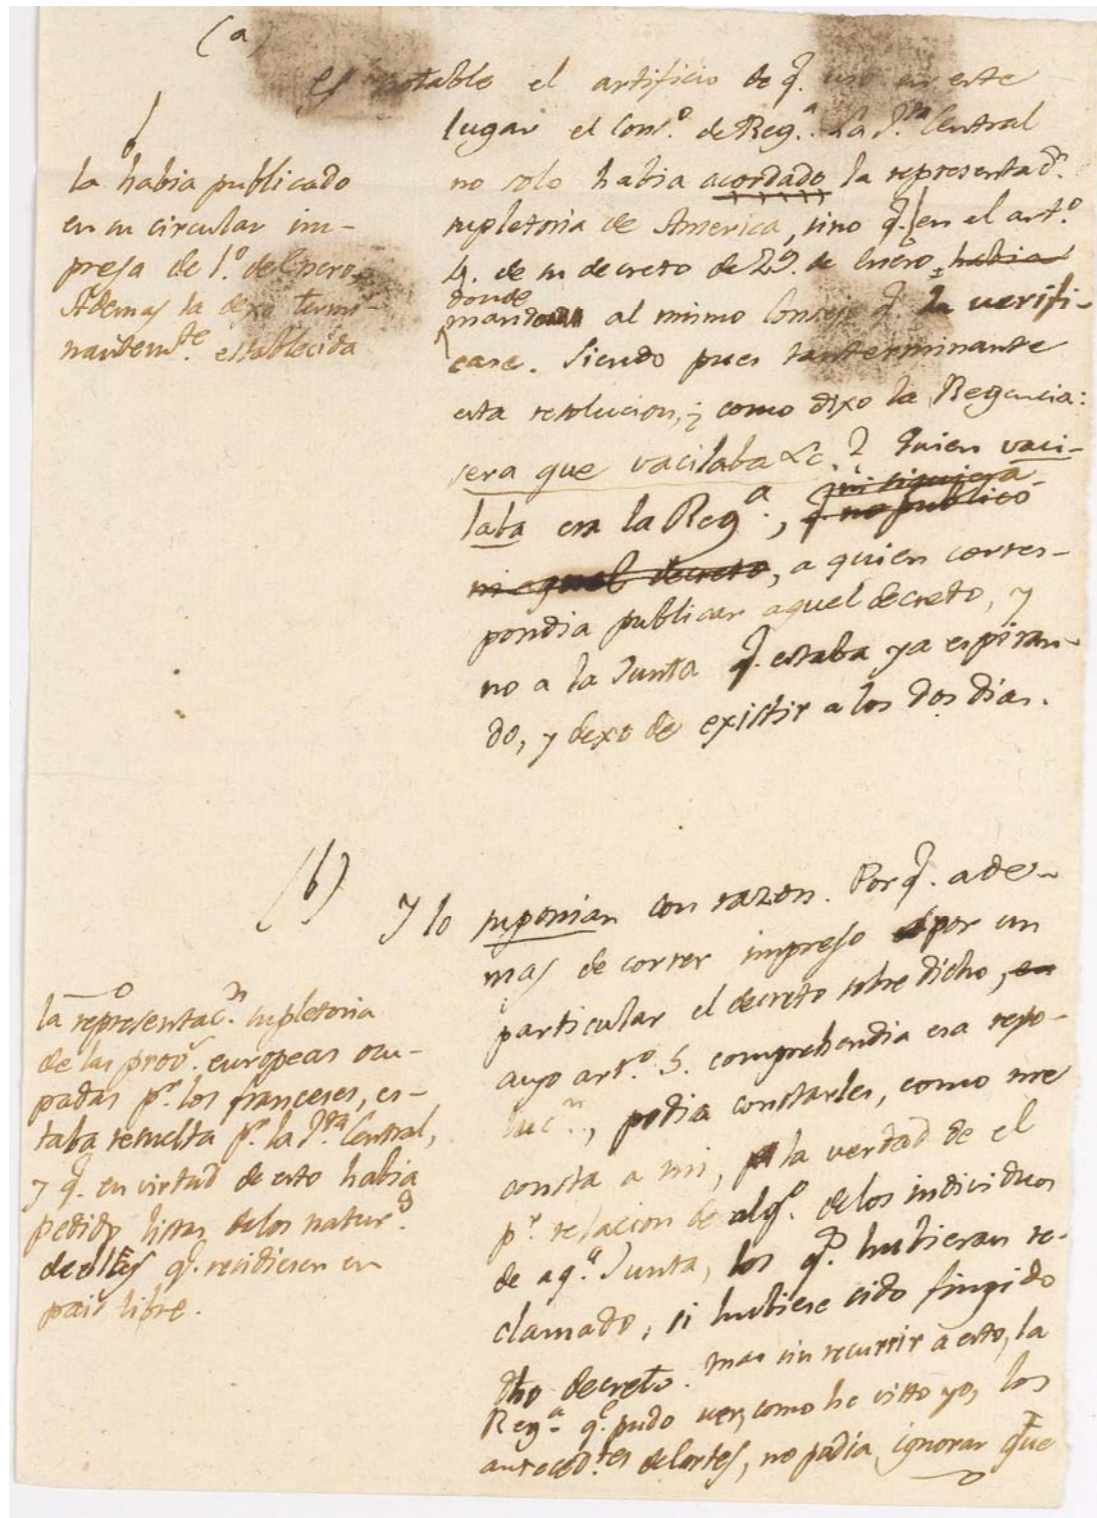 (a)
Es notable el artificio de q.e usó en este
lugar el Cons.º de Reg.ª. La J.ta Central
no solo habia acordado la representac.n
supletoria de America, sino q.e en el art.º
4. de su decreto de 29. de Enero, habia
donde
mandó al mismo Consejo q.e la verifi-
case. Siendo pues tan terminante
esta resolucion, ¿como dixo la Regencia:
sera que vacilaba &c.? Quien vaci-
ni siquiera
laba era la Reg.ª, q.e no publicó
ni aquel decreto, a quien corres-
pondia publicar aquel decreto, y
no a la Junta q.e estaba ya espiran-
do, y dexó de existir a los dos dias.
la habia publicado
en su circular im-
presa de 1.º del pero
Ademas la dexó termi-
nantem.te establecida
(b)
y lo suponian con razon. Porq.e ade-
mas de correr impreso por un
particular el decreto sobre dicho, en
cuyo art.º 5. comprehendia esa reso-
luc.n, podia constarles, como me
consta a mi, la verdad de el
p.r relacion de alg.s de los individuos
de aq.a Junta, los q.e hubieran re-
clamado, si hubiese sido fingido
dho decreto. Mas sin recurrir a esto, la
Reg.ª q.e pudo ver, como he visto yo, los
anteced.tes de Cortes, no podia ignorar que
la representac.n supletoria
de las prov.s europeas ocu-
padas p.r los franceses, es-
taba resuelta p.r la J.ta Central,
y q.e en virtud de esto habia
pedido listas de los natur.s
de ellas q.e residiesen en
pais libre.